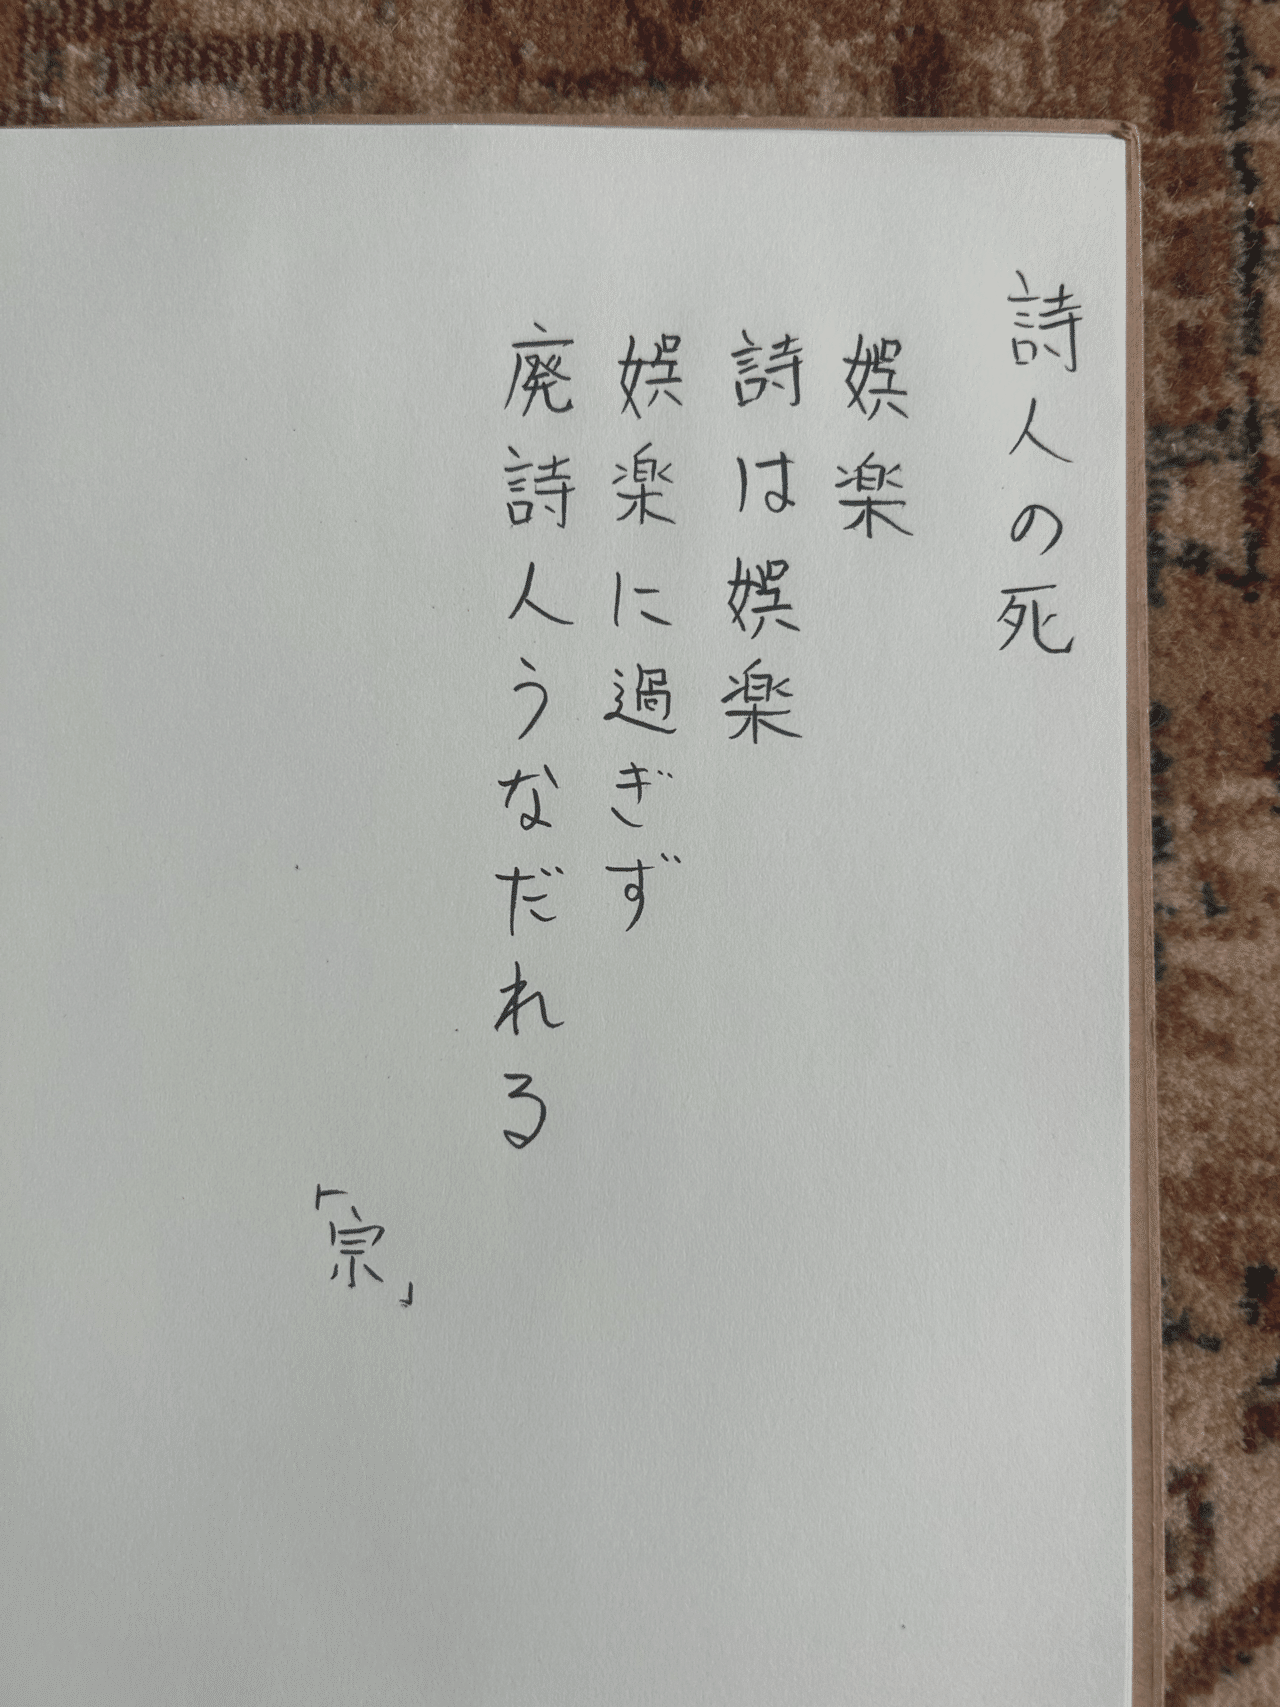 詩人の死
娯楽
詩は娯楽
娯楽に過ぎず
廃詩人うなだれる
「宗」